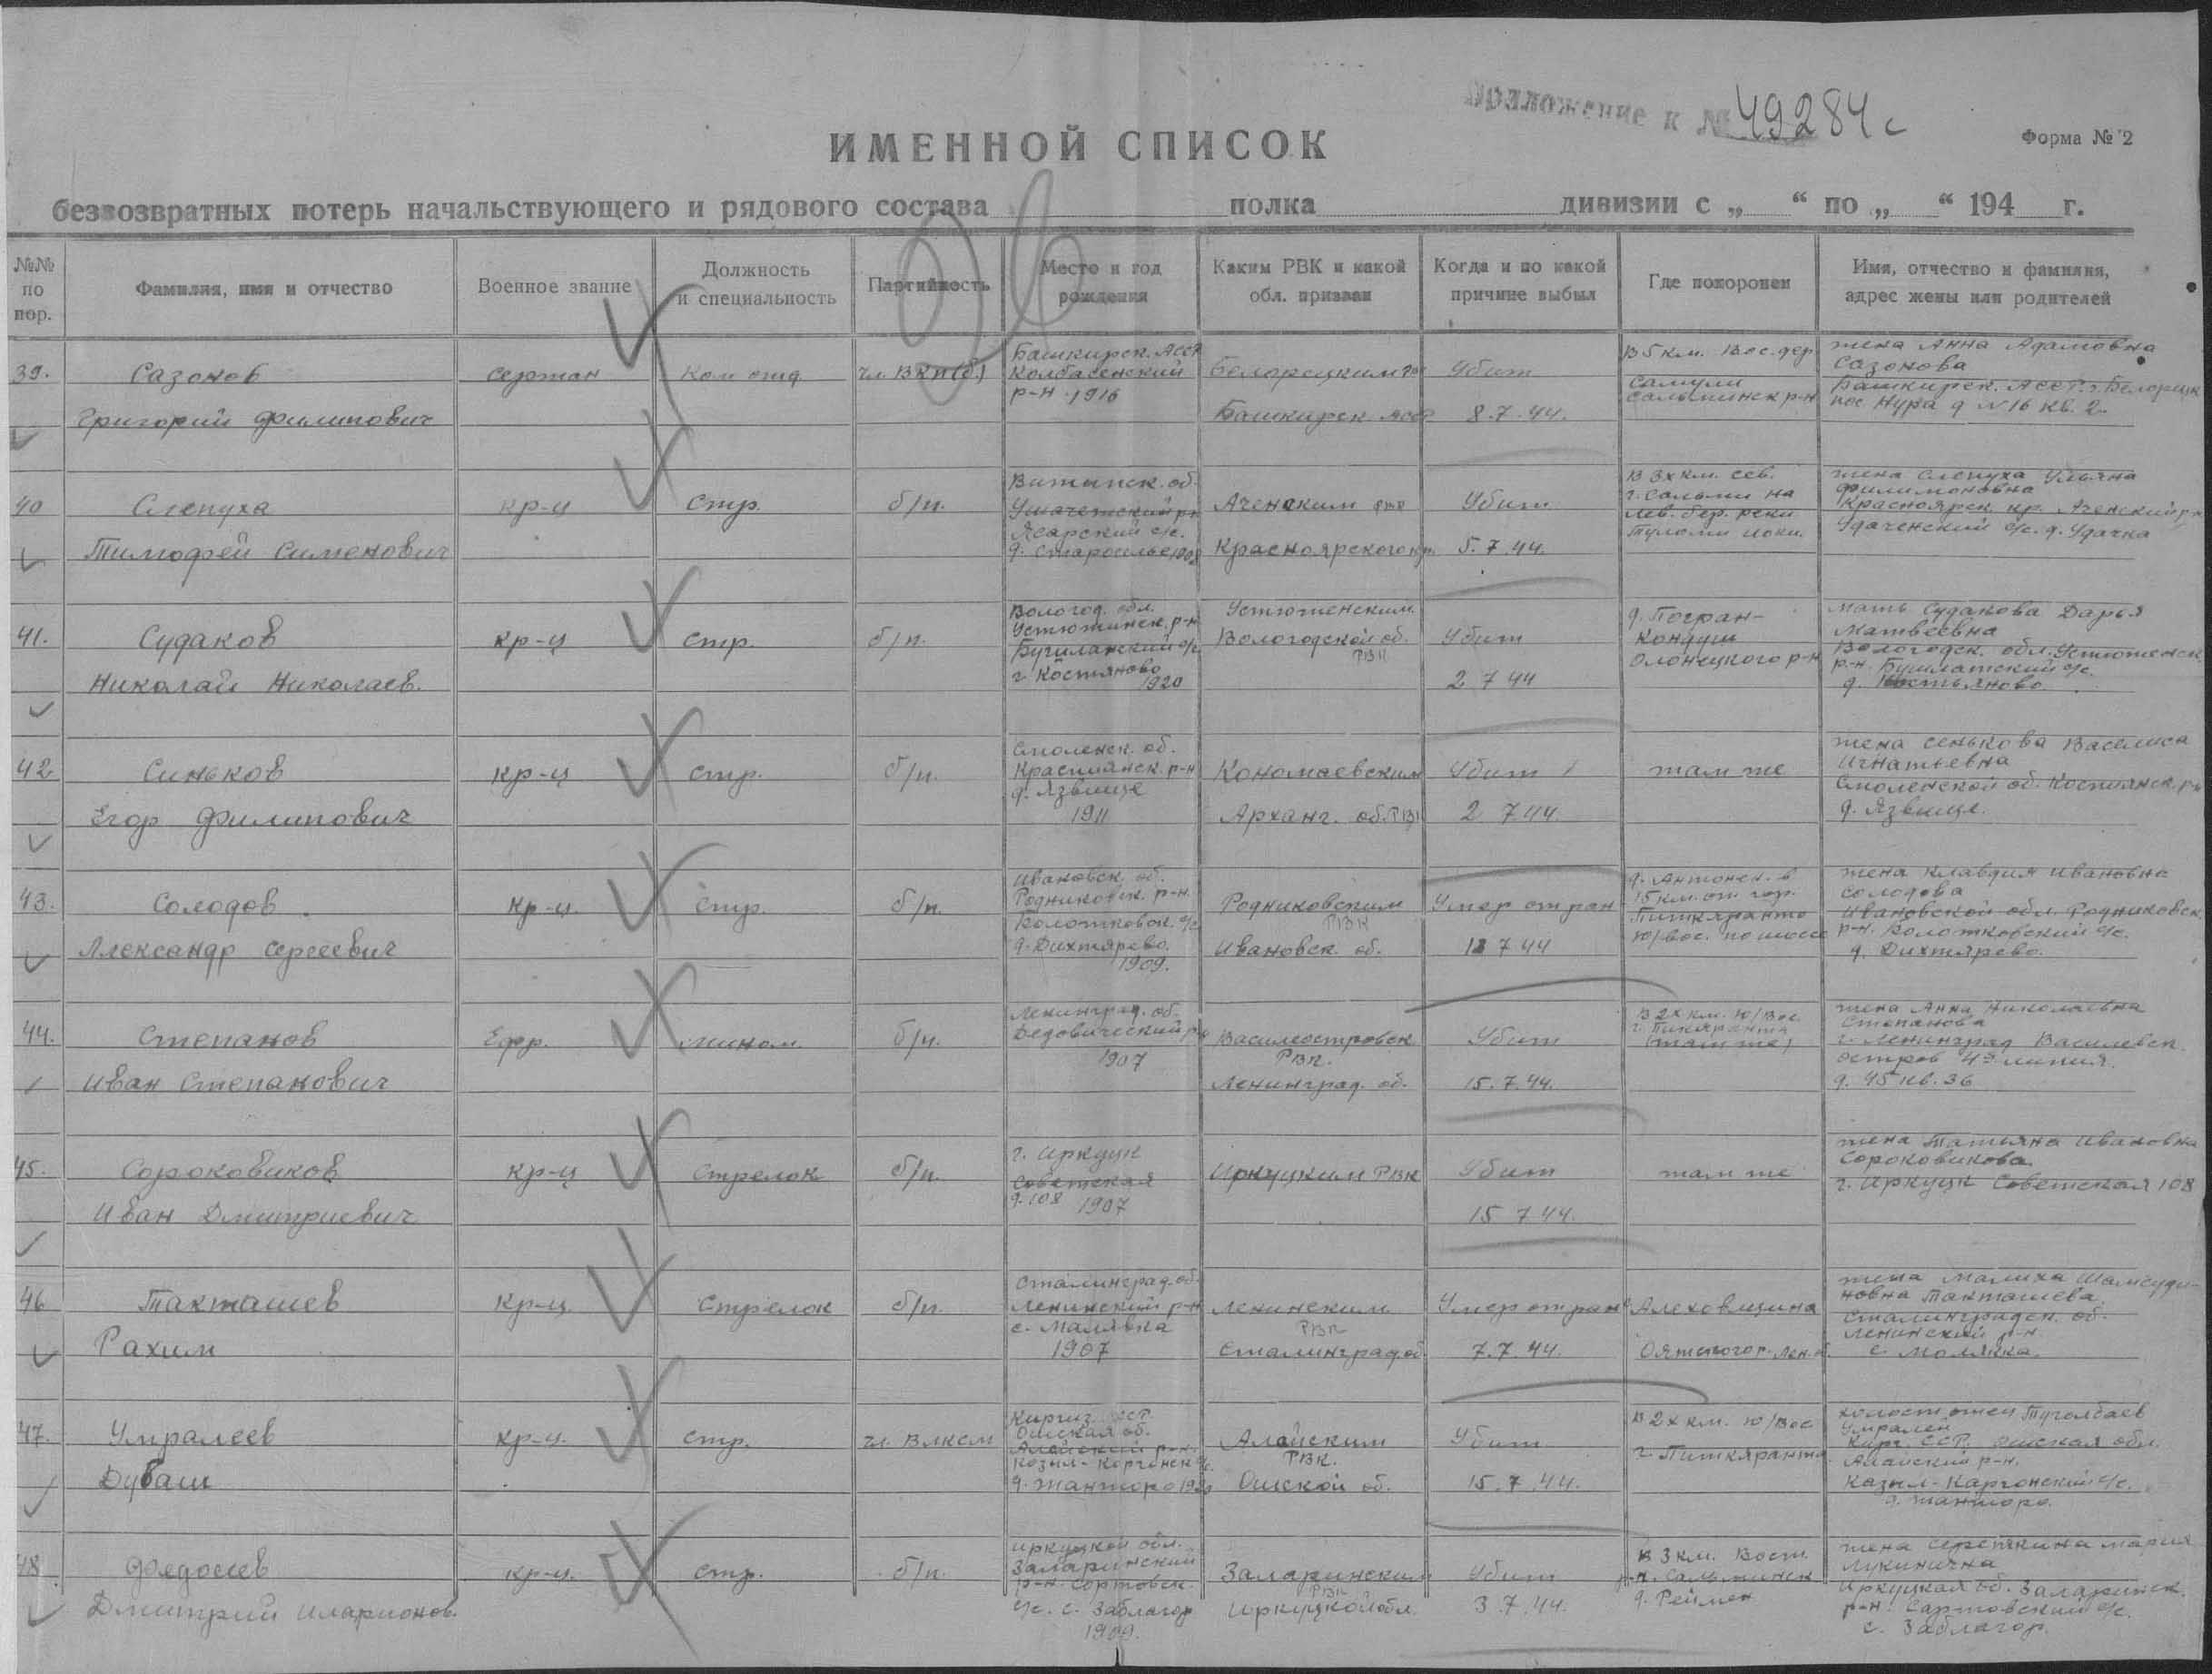 Приложение к № 49284с
Форма № 2
ИМЕННОЙ СПИСОК
безвозвратных потерь начальствующего и рядового состава полка дивизии с „ “ по „ “ 194 г.
№№ по пор.
Фамилия, имя и отчество
Военное звание
Должность и специальность
Партийность
Место и год рождения
Каким РВК и какой обл. призван
Когда и по какой причине выбыл
Где похоронен
Имя, отчество и фамилия, адрес жены или родителей
39.
Сазонов
Григорий Филипович
сержан
Ком отд.
Чл. ВКП(б)
Башкирск. АССР
Колбасенский
р-н 1916
Белорецким
Башкирск. АССР
Убит
8.7.44.
В 5 км. Вос. дер
Самули
Сальминск р-н
жена Анна Адамовна
Сазонова
Башкирск. АССР. г. Белорецк
пос Нура д № 16 кв. 2.
40
Слепуха
Тимофей Сименович
кр-ц
Стр.
б/п.
Витипск. об.
Ясарский с/с.
д. Старосилье
Аченским
Красноярского кр.
Убит
5.7.44.
В 3х км. сев.
г. Сальми на
лев. бер. реки
жена Слепуха Ульяна
Филимоновна
Красноярск. кр. Аченский р-н
Удаченский с/с. д. Удачка
41.
Судаков
Николай Николаев.
кр-ц
стр.
б/п.
Вологод. обл.
Устюженск. р-н
с/с.
г Костяново
1920
Устюженским
Вологодской об.
РВК
Убит
2 7 44
д. Погран-
Кондуши
Олонецкого р-н
мать Судакова Дарья
Матвеевна
Вологодск. обл. Устюженск
р-н. с/с.
д. Костьяново
42
Синьков
Егор Филипович
кр-ц
стр.
б/п.
Смоленск. об.
р-н
д. Язвище
1911
Архан. об. РВК
Убит
2 7 44.
там же
жена Сенькова Васелиса
Игнатьевна
Смоленской об.
д. Язвище.
43.
Солодов
Александр Сергеевич
кр-ц.
стр.
б/п.
Ивановск. об.
Родниковск. р-н.
Болотновск. с/с
д. Дихтярево.
1909.
Родниковским
РВК
Ивановск. об.
Умер от ран
18 7 44
15 км. от гор.
Питкяранто
ю/вос. по шоссе
жена Клавдия Ивановна
Солодова
Ивановской обл. Родниковск.
р-н. Болотковский с/с.
д. Дихтярево.
44.
Степанов
Иван Степанович
Ефр.
мином.
б/п.
Ленинград. об.
Дедовический р-н
1907
Василеостровск
РВК.
Ленинград. об.
Убит
15.7.44.
В 2х км. ю/Вос.
г. Пикяранта
(там же)
жена Анна Николаевна
Степанова
г. Ленинград Василевск.
остров 4я линия.
д. 45 кв. 36
45.
Сороковиков
Иван Дмитриевич
кр-ц
Стрелок
б/п.
г. Иркуцк
Советская
д. 108 1907
Иркуцким РВК
Убит
15 7 44.
там же
жена Татьяна Ивановна
Сороковикова
г. Иркуцк Советская 108
46
Такташев
Рахим
кр-ц
Стрелок
б/п.
Сталинград. об.
Ленинский р-н
с. Малявка
1907
Ленинским
РВК
Сталинград. об.
Умер от ран
7.7.44.
Алеховщина
жена Малиха Шамсуди-
новна Такташева.
Сталинградск. об.
Ленинский р-н.
с. Молявка.
47.
Умралеев
Дубаш
кр-ц.
стр.
чл. ВЛКСМ
Киргиз. ССР.
Ошская об.
Алайский р-н.
д. Жанжоро
Алайским
РВК.
Ошской об.
Убит
15.7.44.
В 2х км. ю/Вос
г. Питкяранта
холост отец
Умралей
Кирг. ССР. Ошская обл.
Алайский р-н.
Казыл-Каргонский с/с.
д. Жанжоро.
48
Федосеев
Дмитрий Иларионов.
кр-ц.
стр.
б/п.
Иркуцкой обл.
Заларинский
р-н. Сортовск.
с/с. с. Заблагор
1909.
Заларинским
РВК
Иркуцкой обл.
Убит
3.7.44.
в 3 км. Вост.
р-н. Сальминск
жена Мария
Лукинична
Иркуцкая об. Заларинск.
р-н. Сартовский с/с.
с. Заблагор.